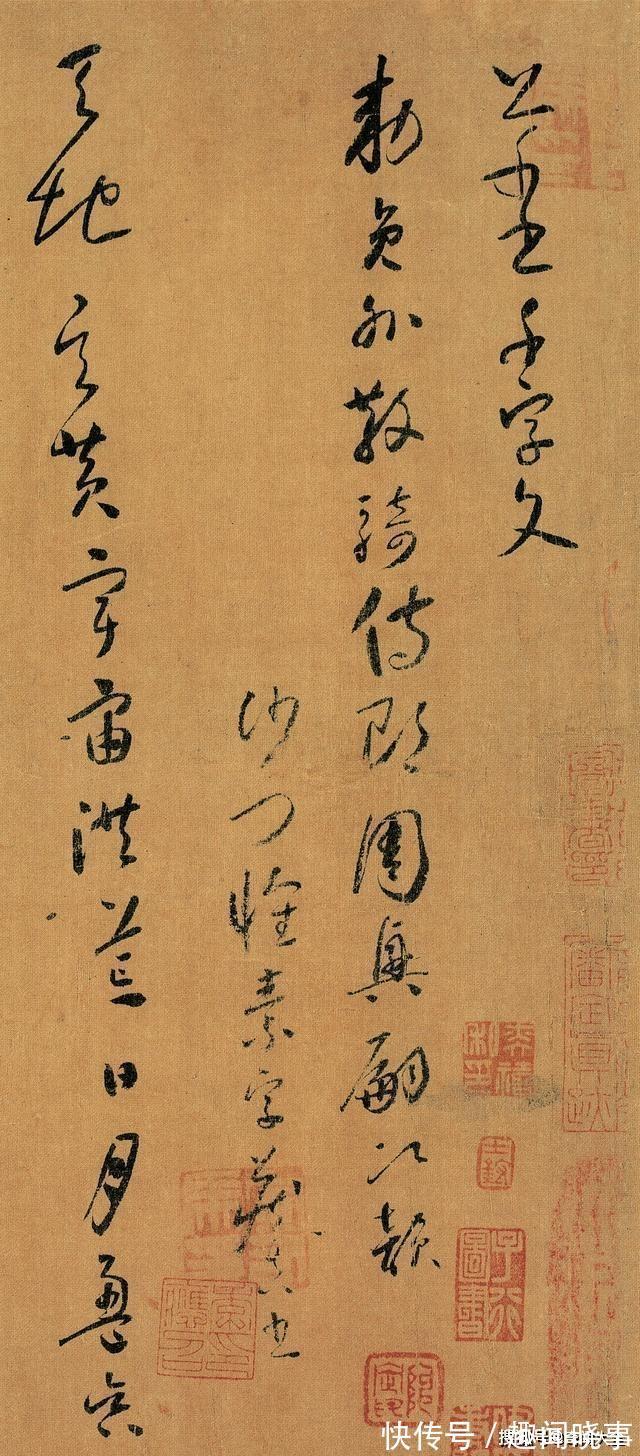 草書千字文
勅員外散騎侍郎周興嗣次韻
沙門懷素字藏真書
天地玄黃宇宙洪荒日月盈昃
快传号／趣闻晓事